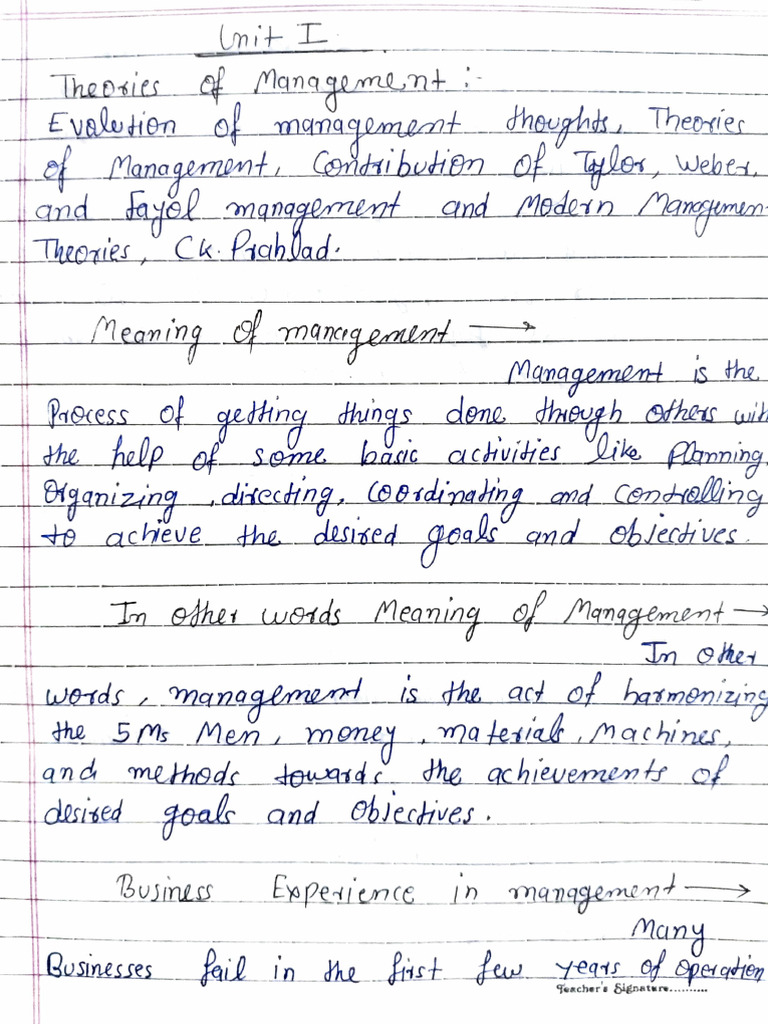 Unit I
Theories of Management :-
Evolution of management thoughts, Theories
of Management, Contribution of Taylor, Weber,
and Fayol management and Modern Managemen
Theories, Ck. Prahlad.
Meaning of management →
Management is the
Process of getting things done through others with
the help of some basic activities like Planning,
Organizing, directing, Coordinating and Controlling
to achieve the desired goals and objectives.
In other words Meaning of Management →
In other
words, management is the act of harmonizing
the 5Ms Men, money, materials, Machines,
and methods towards the achievements of
desired goals and objectives.
Business Experience in management →
Many
Businesses fail in the first few years of operation
Teacher's Signature..........